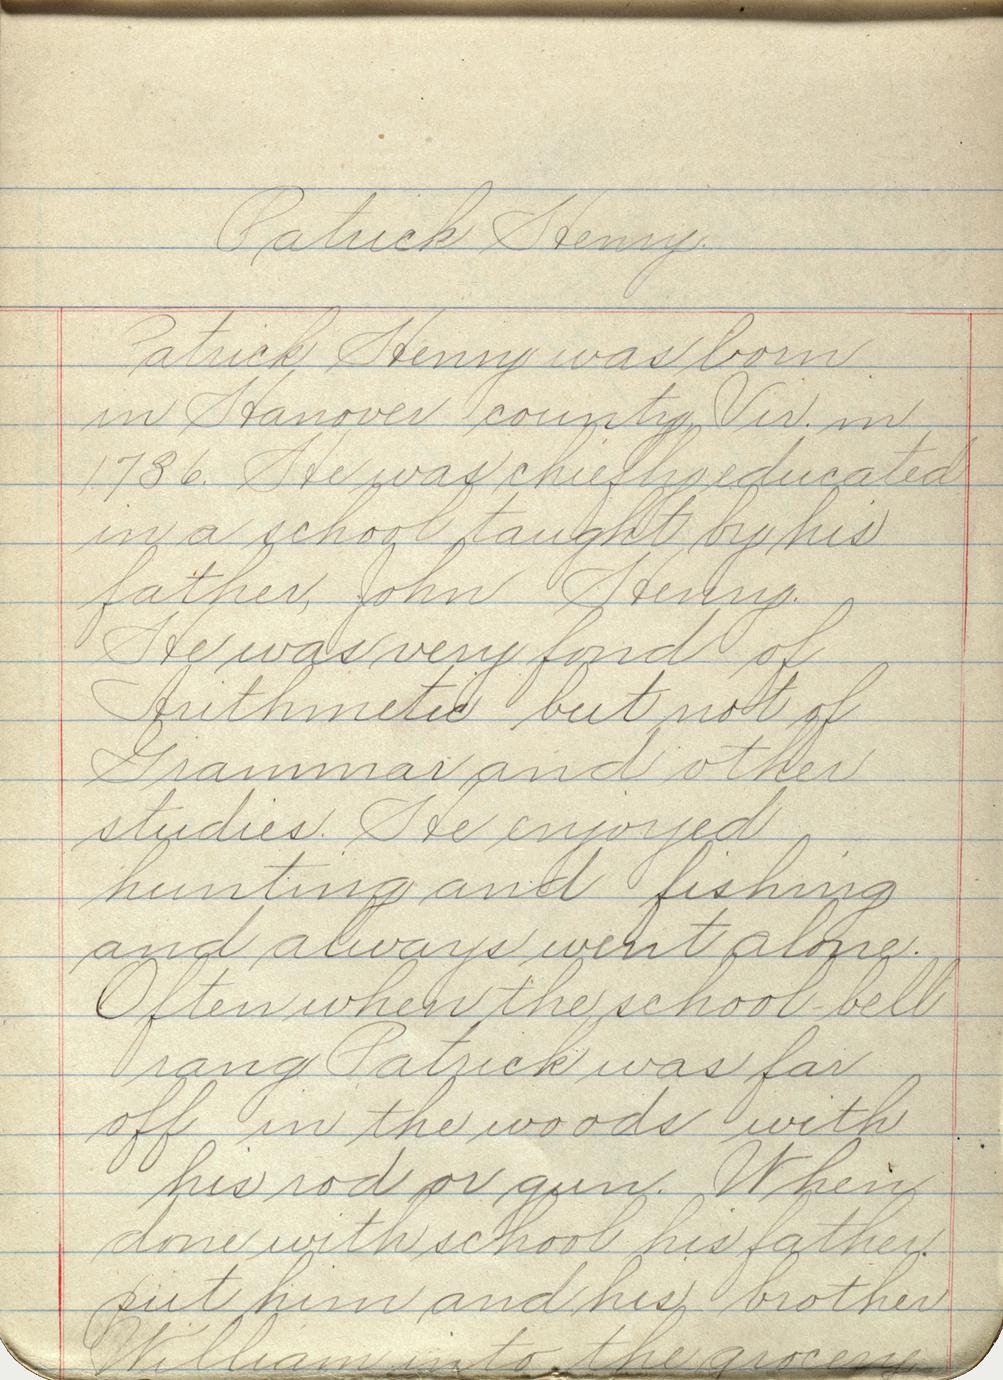 Patrick Henry.
Patrick Henry was born
in Hanover county, Vir. in
1736. He was chiefly educated
in a school taught by his
father, John Henry.
He was very fond of
Arithmetic but not of
Grammar and other
studies. He enjoyed
hunting and fishing
and always went alone.
Often when the school-bell
rang Patrick was far
off in the woods with
his rod or gun. When
done with school his father
put him and his brother
William into the grocery